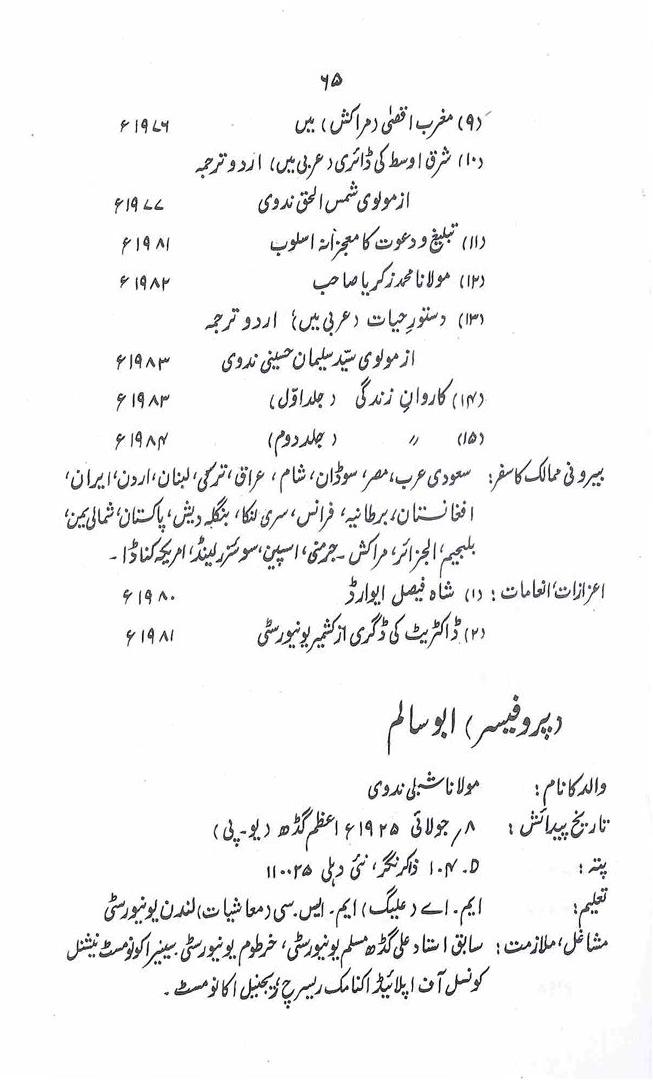 ۶۵
(۹) مغرب اقصٰی (مراکش) میں ۱۹۷۶ء
(۱۰) شرق اوسط کی ڈائری (عربی میں) اردو ترجمہ
از مولوی شمس الحق ندوی ۱۹۷۷ء
(۱۱) تبلیغ و دعوت کا معجزانہ اسلوب ۱۹۸۱ء
(۱۲) مولانا محمد زکریا صاحب ۱۹۸۲ء
(۱۳) دستور حیات (عربی میں) اردو ترجمہ
از مولوی سیّد سلیمان حسینی ندوی ۱۹۸۳ء
(۱۴) کاروانِ زندگی (جلد اوّل) ۱۹۸۳ء
(۱۵) 〃 (جلد دوم) ۱۹۸۴ء
بیرونی ممالک کا سفر: سعودی عرب، مصر، سوڈان، شام، عراق، ترکی، لبنان، اردن، ایران،
افغانستان، برطانیہ، فرانس، سری لنکا، بنگلہ دیش، پاکستان، شمالی یمن،
بلجیم، الجزائر، مراکش۔ جرمنی، اسپین، سوئٹزرلینڈ، امریکہ کناڈا۔
اعزازات، انعامات: (۱) شاہ فیصل ایوارڈ ۱۹۸۰ء
(۲) ڈاکٹریٹ کی ڈگری از کشمیر یونیورسٹی ۱۹۸۱ء
(پروفیسر) ابو سالم
والد کا نام: مولانا شبلی ندوی
تاریخ پیدائش: ۸/ جولائی ۱۹۲۵ء اعظم گڈھ (یو۔پی)
پتہ: D۔۱۰۴ ذاکر نگر، نئی دہلی ۱۱۰۰۲۵
تعلیم: ایم۔اے (علیگ) ایم۔ایس۔سی (معاشیات) لندن یونیورسٹی
مشاغل، ملازمت: سابق استاد علی گڈھ مسلم یونیورسٹی، خرطوم یونیورسٹی سینیر اکونومسٹ نیشنل
کونسل آف اپلائیڈ اکنامک ریسرچ، ریجنیل اکانومسٹ۔